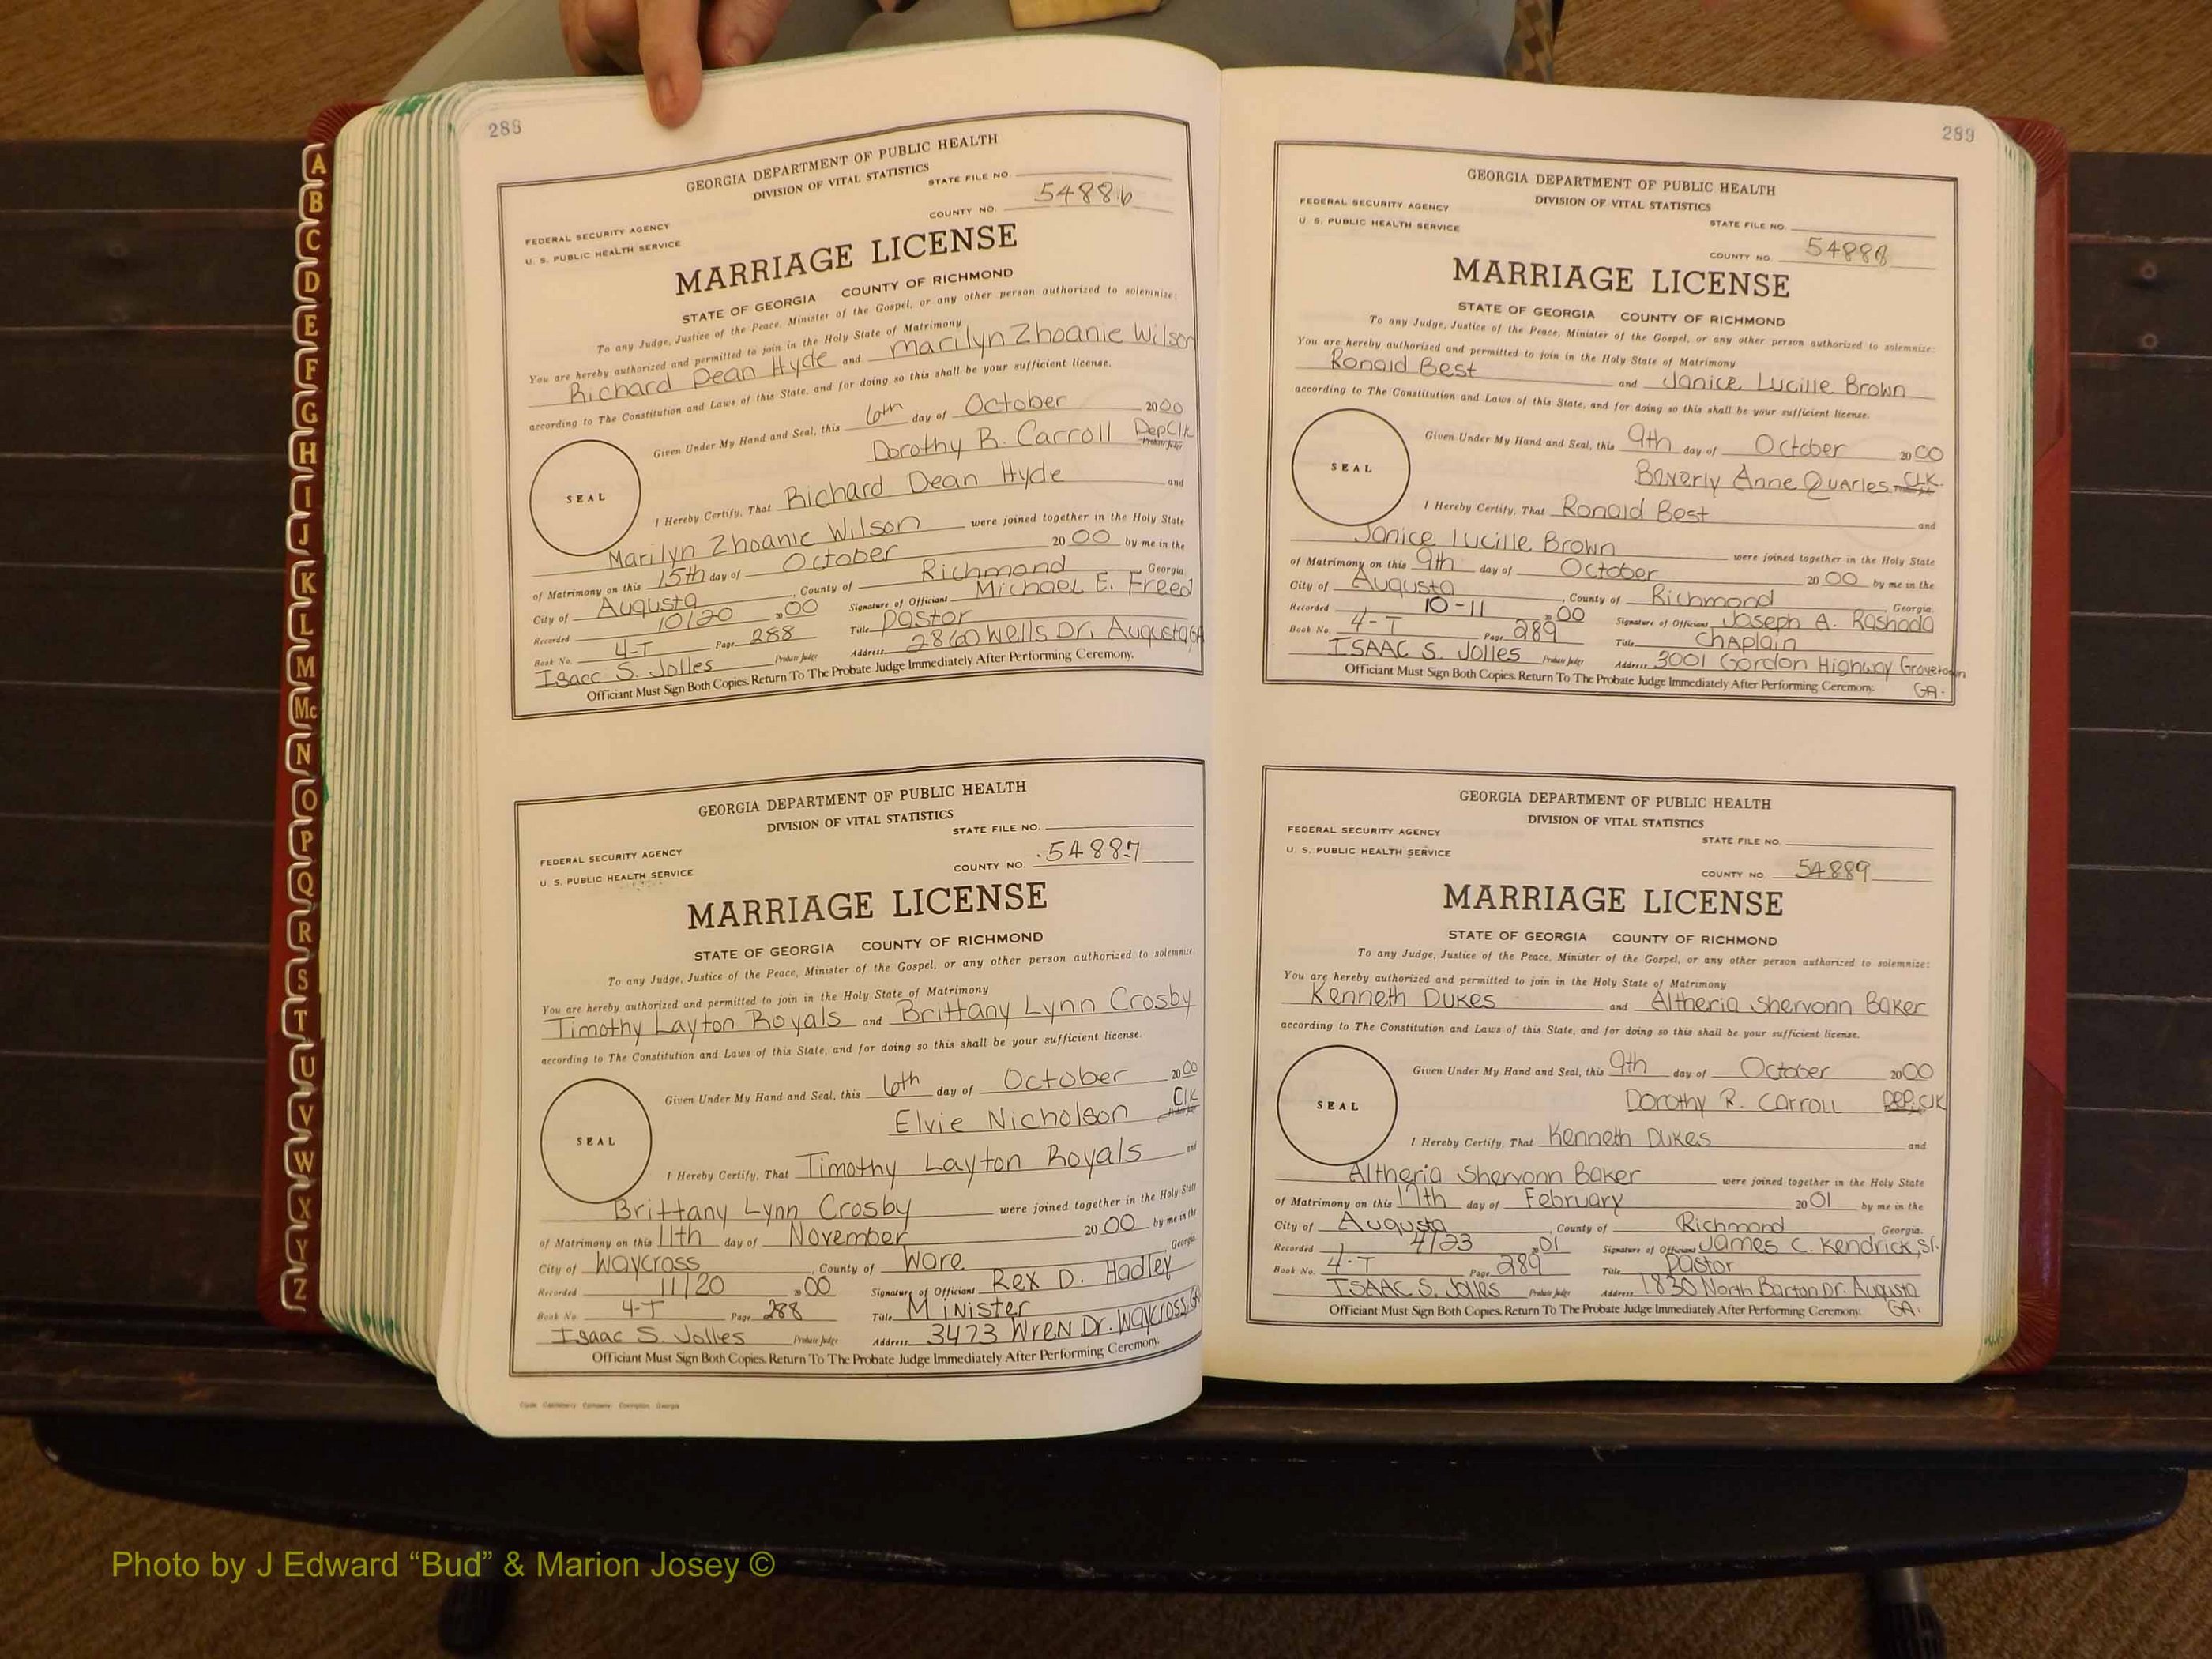 A
B
C
D
E
F
G
H
I
J
K
L
M
Mc
N
O
P
Q
R
S
T
U
V
W
X
Y
Z
288
GEORGIA DEPARTMENT OF PUBLIC HEALTH
DIVISION OF VITAL STATISTICS
STATE FILE NO.
FEDERAL SECURITY AGENCY
COUNTY NO. 54886
U. S. PUBLIC HEALTH SERVICE
MARRIAGE LICENSE
STATE OF GEORGIA COUNTY OF RICHMOND
To any Judge, Justice of the Peace, Minister of the Gospel, or any other person authorized to solemnize:
You are hereby authorized and permitted to join in the Holy State of Matrimony
Richard Dean Hyde and Marilyn Zhoanie Wilson
according to The Constitution and Laws of this State, and for doing so this shall be your sufficient license.
Given Under My Hand and Seal, this 6th day of October 2000
Dorothy R. Carroll Dep Clk
SEAL
I Hereby Certify, That Richard Dean Hyde and
Marilyn Zhoanie Wilson were joined together in the Holy State
of Matrimony on this 15th day of October 20 00 by me in the
City of Augusta, County of Richmond Georgia.
Recorded 10/20 00 Signature of Officiant Michael E. Freed
Book No. 4-T Page 288 Title Pastor
Isacc S. Jolles Probate Judge Address 2860 Wells Dr. Augusta GA
Officiant Must Sign Both Copies. Return To The Probate Judge Immediately After Performing Ceremony.
GEORGIA DEPARTMENT OF PUBLIC HEALTH
DIVISION OF VITAL STATISTICS
STATE FILE NO.
FEDERAL SECURITY AGENCY
COUNTY NO. 54887
U. S. PUBLIC HEALTH SERVICE
MARRIAGE LICENSE
STATE OF GEORGIA COUNTY OF RICHMOND
To any Judge, Justice of the Peace, Minister of the Gospel, or any other person authorized to solemnize:
You are hereby authorized and permitted to join in the Holy State of Matrimony
Timothy Layton Royals and Brittany Lynn Crosby
according to The Constitution and Laws of this State, and for doing so this shall be your sufficient license.
Given Under My Hand and Seal, this 6th day of October 2000
Elvie Nicholson Clk
SEAL
I Hereby Certify, That Timothy Layton Royals and
Brittany Lynn Crosby were joined together in the Holy State
of Matrimony on this 11th day of November 20 00 by me in the
City of Waycross, County of Ware Georgia.
Recorded 11/20 00 Signature of Officiant Rex D. Hadley
Book No. 4-T Page 288 Title Minister
Isaac S. Jolles Probate Judge Address 3473 Wren Dr. Waycross, GA
Officiant Must Sign Both Copies. Return To The Probate Judge Immediately After Performing Ceremony.
289
GEORGIA DEPARTMENT OF PUBLIC HEALTH
DIVISION OF VITAL STATISTICS
FEDERAL SECURITY AGENCY
STATE FILE NO.
U. S. PUBLIC HEALTH SERVICE
COUNTY NO. 54888
MARRIAGE LICENSE
STATE OF GEORGIA COUNTY OF RICHMOND
To any Judge, Justice of the Peace, Minister of the Gospel, or any other person authorized to solemnize:
You are hereby authorized and permitted to join in the Holy State of Matrimony
Ronald Best and Janice Lucille Brown
according to The Constitution and Laws of this State, and for doing so this shall be your sufficient license.
Given Under My Hand and Seal, this 9th day of October 2000
Beverly Anne Quarles CLK.
SEAL
I Hereby Certify, That Ronald Best and
Janice Lucille Brown were joined together in the Holy State
of Matrimony on this 9th day of October 20 00 by me in the
City of Augusta, County of Richmond Georgia.
Recorded 10-11 00 Signature of Officiant Joseph A. Rashada
Book No. 4-T Page 289 Title Chaplain
ISAAC S. Jolles Probate Judge Address 3001 Gordon Highway Grovetown
GA.
Officiant Must Sign Both Copies. Return To The Probate Judge Immediately After Performing Ceremony.
GEORGIA DEPARTMENT OF PUBLIC HEALTH
DIVISION OF VITAL STATISTICS
FEDERAL SECURITY AGENCY
STATE FILE NO.
U. S. PUBLIC HEALTH SERVICE
COUNTY NO. 54889
MARRIAGE LICENSE
STATE OF GEORGIA COUNTY OF RICHMOND
To any Judge, Justice of the Peace, Minister of the Gospel, or any other person authorized to solemnize:
You are hereby authorized and permitted to join in the Holy State of Matrimony
Kenneth Dukes and Altheria Shervonn Baker
according to The Constitution and Laws of this State, and for doing so this shall be your sufficient license.
Given Under My Hand and Seal, this 9th day of October 2000
Dorothy R. Carroll DEP. CLK
SEAL
I Hereby Certify, That Kenneth Dukes and
Altheria Shervonn Baker were joined together in the Holy State
of Matrimony on this 17th day of February 20 01 by me in the
City of Augusta, County of Richmond Georgia.
Recorded 4/23 01 Signature of Officiant James C. Kendrick, Sr.
Book No. 4-T Page 289 Title Pastor
ISAAC S. Jolles Probate Judge Address 1830 North Barton Dr. Augusta
GA.
Officiant Must Sign Both Copies. Return To The Probate Judge Immediately After Performing Ceremony.
Photo by J Edward “Bud” & Marion Josey ©